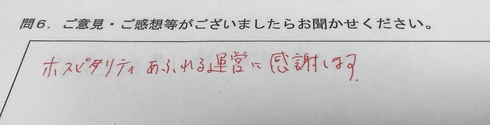 問６．ご意見・ご感想等がございましたらお聞かせください。
ホスピタリティあふれる運営に感謝します